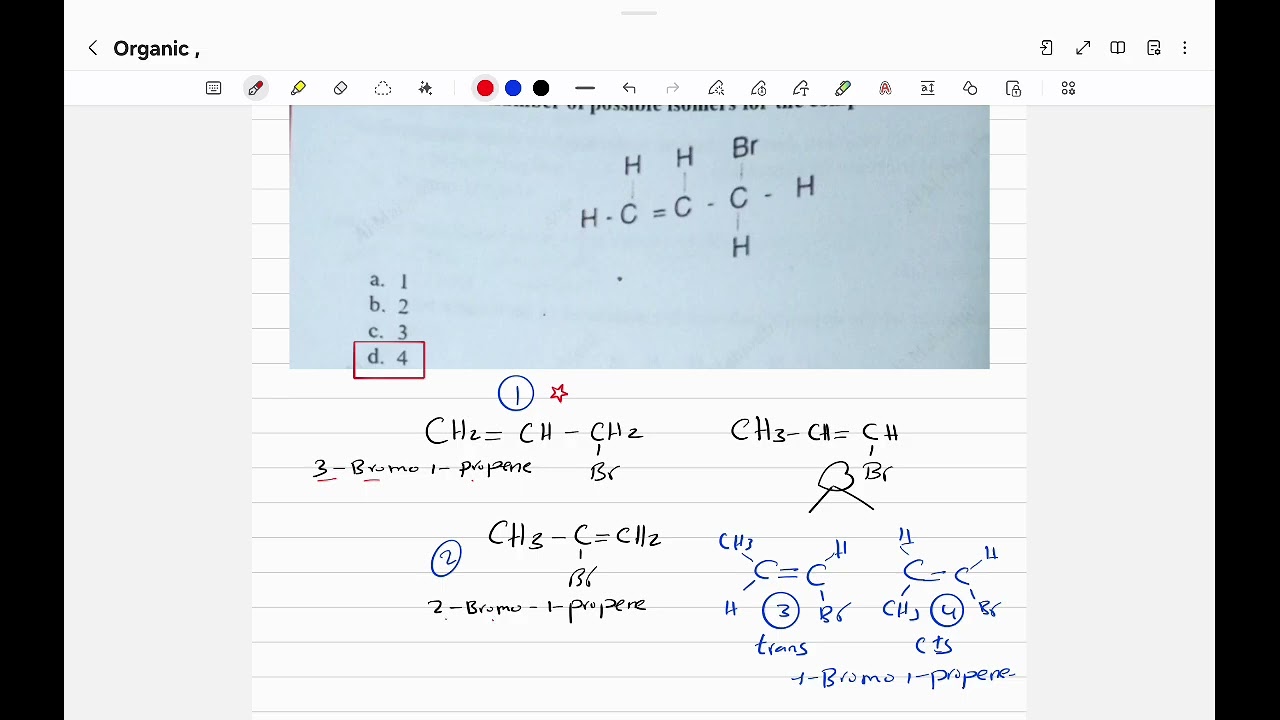 Organic ,
number of possible isomers for the
H H Br
H - C = C - C - H
H
a. 1
b. 2
c. 3
d. 4
1
CH2 = CH - CH2
Br
3-Bromo 1-propene
CH3- CH= CH
Br
2
CH3 - C = CH2
Br
2-Bromo-1-propene
CH3 H
C = C
H 3 Br
trans
H H
C = C
CH3 4 Br
Cis
1-Bromo 1-propene